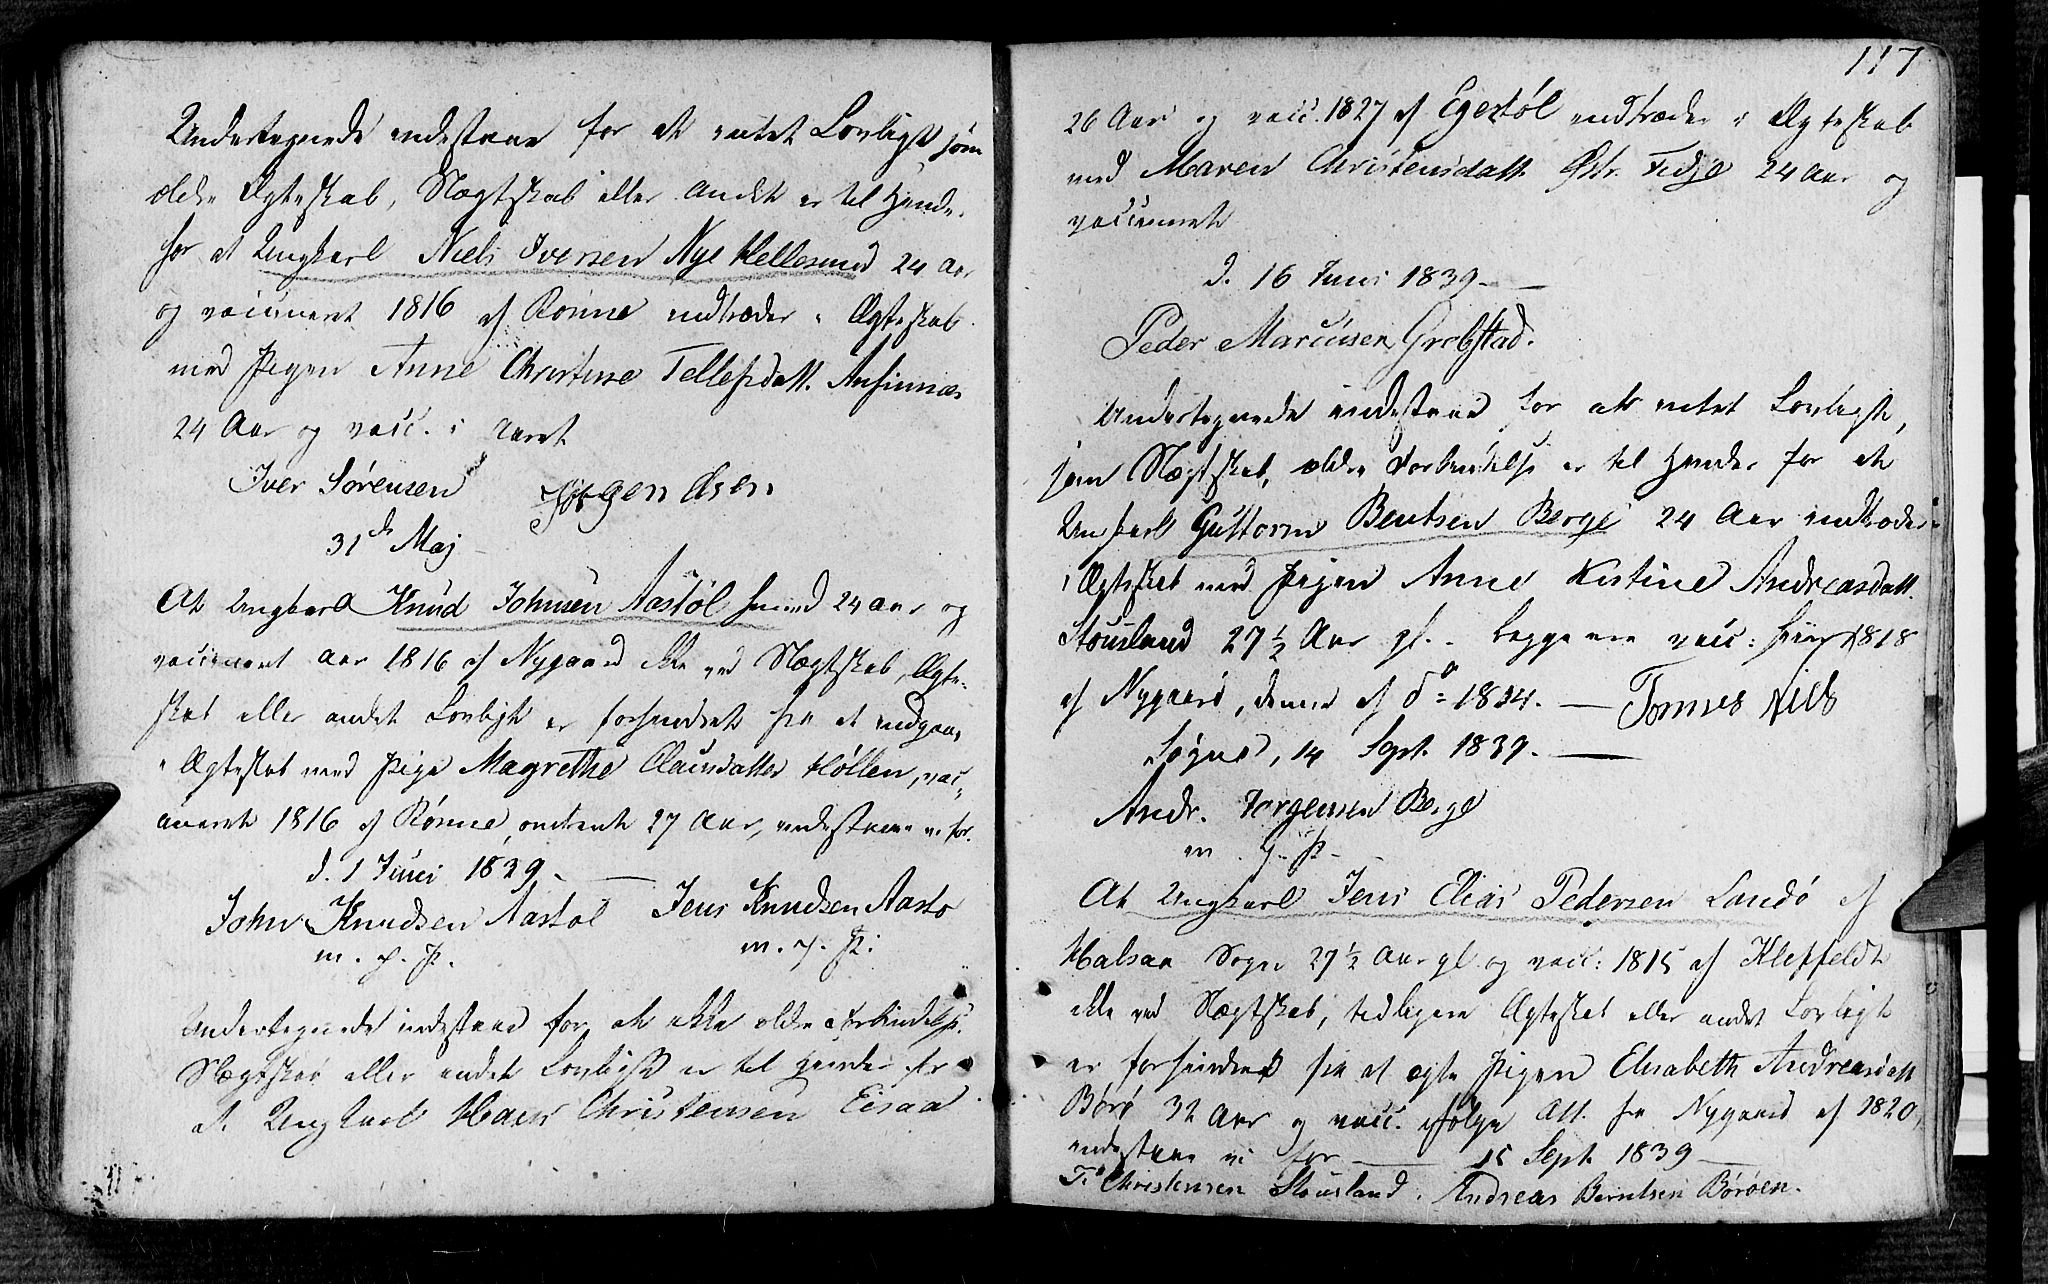 Undertegnede indestaae for at intet Lovligt som
ældre Ægteskab, Slægtskab eller andet er til Hinder
for at Ungkarl Niels Iversen Nye Hellesund 24 Aar
og vaccineret 1816 af Rønne indtræder i Ægteskab
med Pigen Anne Christine Tellefsdatt. Ansinnæs
24 Aar og vacc. i Aaret
Iver Sørensen Jørgen Osen
31de Maj
At Ungkarl Knud Johnsen Aastøl 24 Aar og
vaccineret Aar 1816 af Nygaard ikke ved Slægtskab, Ægte-
skab eller andet Lovligt er forhindret fra at indgaae
i Ægteskab med Pige Magrethe Clausdatter Høllen, vac-
cineret 1816 af Rønne, omtrent 27 Aar, indestaae vi for.
d. 1 Juni 1839.
John Knudsen Aastøl Jens Knudsen Aastø
m. f. P. m. f. P.
Undertegnede indestaae for at ikke ældre Forbindelse
Slægtskab eller andet Lovligt er til Hinder for
at Ungkarl Hans Christensen Eisaa
117
26 Aar og vacc. 1827 af Egestøl indtræder i Ægteskab
med Maren Christensdatt. Østr. Fidje 24 Aar og
vaccineret
d. 16 Juni 1839.
Peder Marcusen Grobstad.
Undertegnede indestaae for at intet Lovligt,
som Slægtskab, ældre Forbindelse er til Hinder for at
Ungkarl Guttorm Bentsen Berge 24 Aar indtræder
i Ægteskab med Pigen Anne Kistine Andreasdatt.
Stousland 27½ Aar gl. Begge ere vacc: hiin 1818
af Nygaard, denne af do 1834. Tomes Nils
Søgne, 14 Sept. 1839.
Andr. Jørgensen Berge
m. f. P.
At Ungkarl Jens Elias Pedersen Landø af
Halsaa Sogn 27½ Aar gl. og vacc: 1815 af Klepfeldt
ikke ved Slægtskab, tidligere Ægteskab eller andet Lovligt
er forhindret fra at ægte Pigen Elisabeth Andreasdatt
Børø 32 Aar og vacc. ifølge Att. fra Nygaard af 1820,
indestaae vi for 15 Sept. 1839
To Christensen Stousland. Andreas Berntsen Børøen.